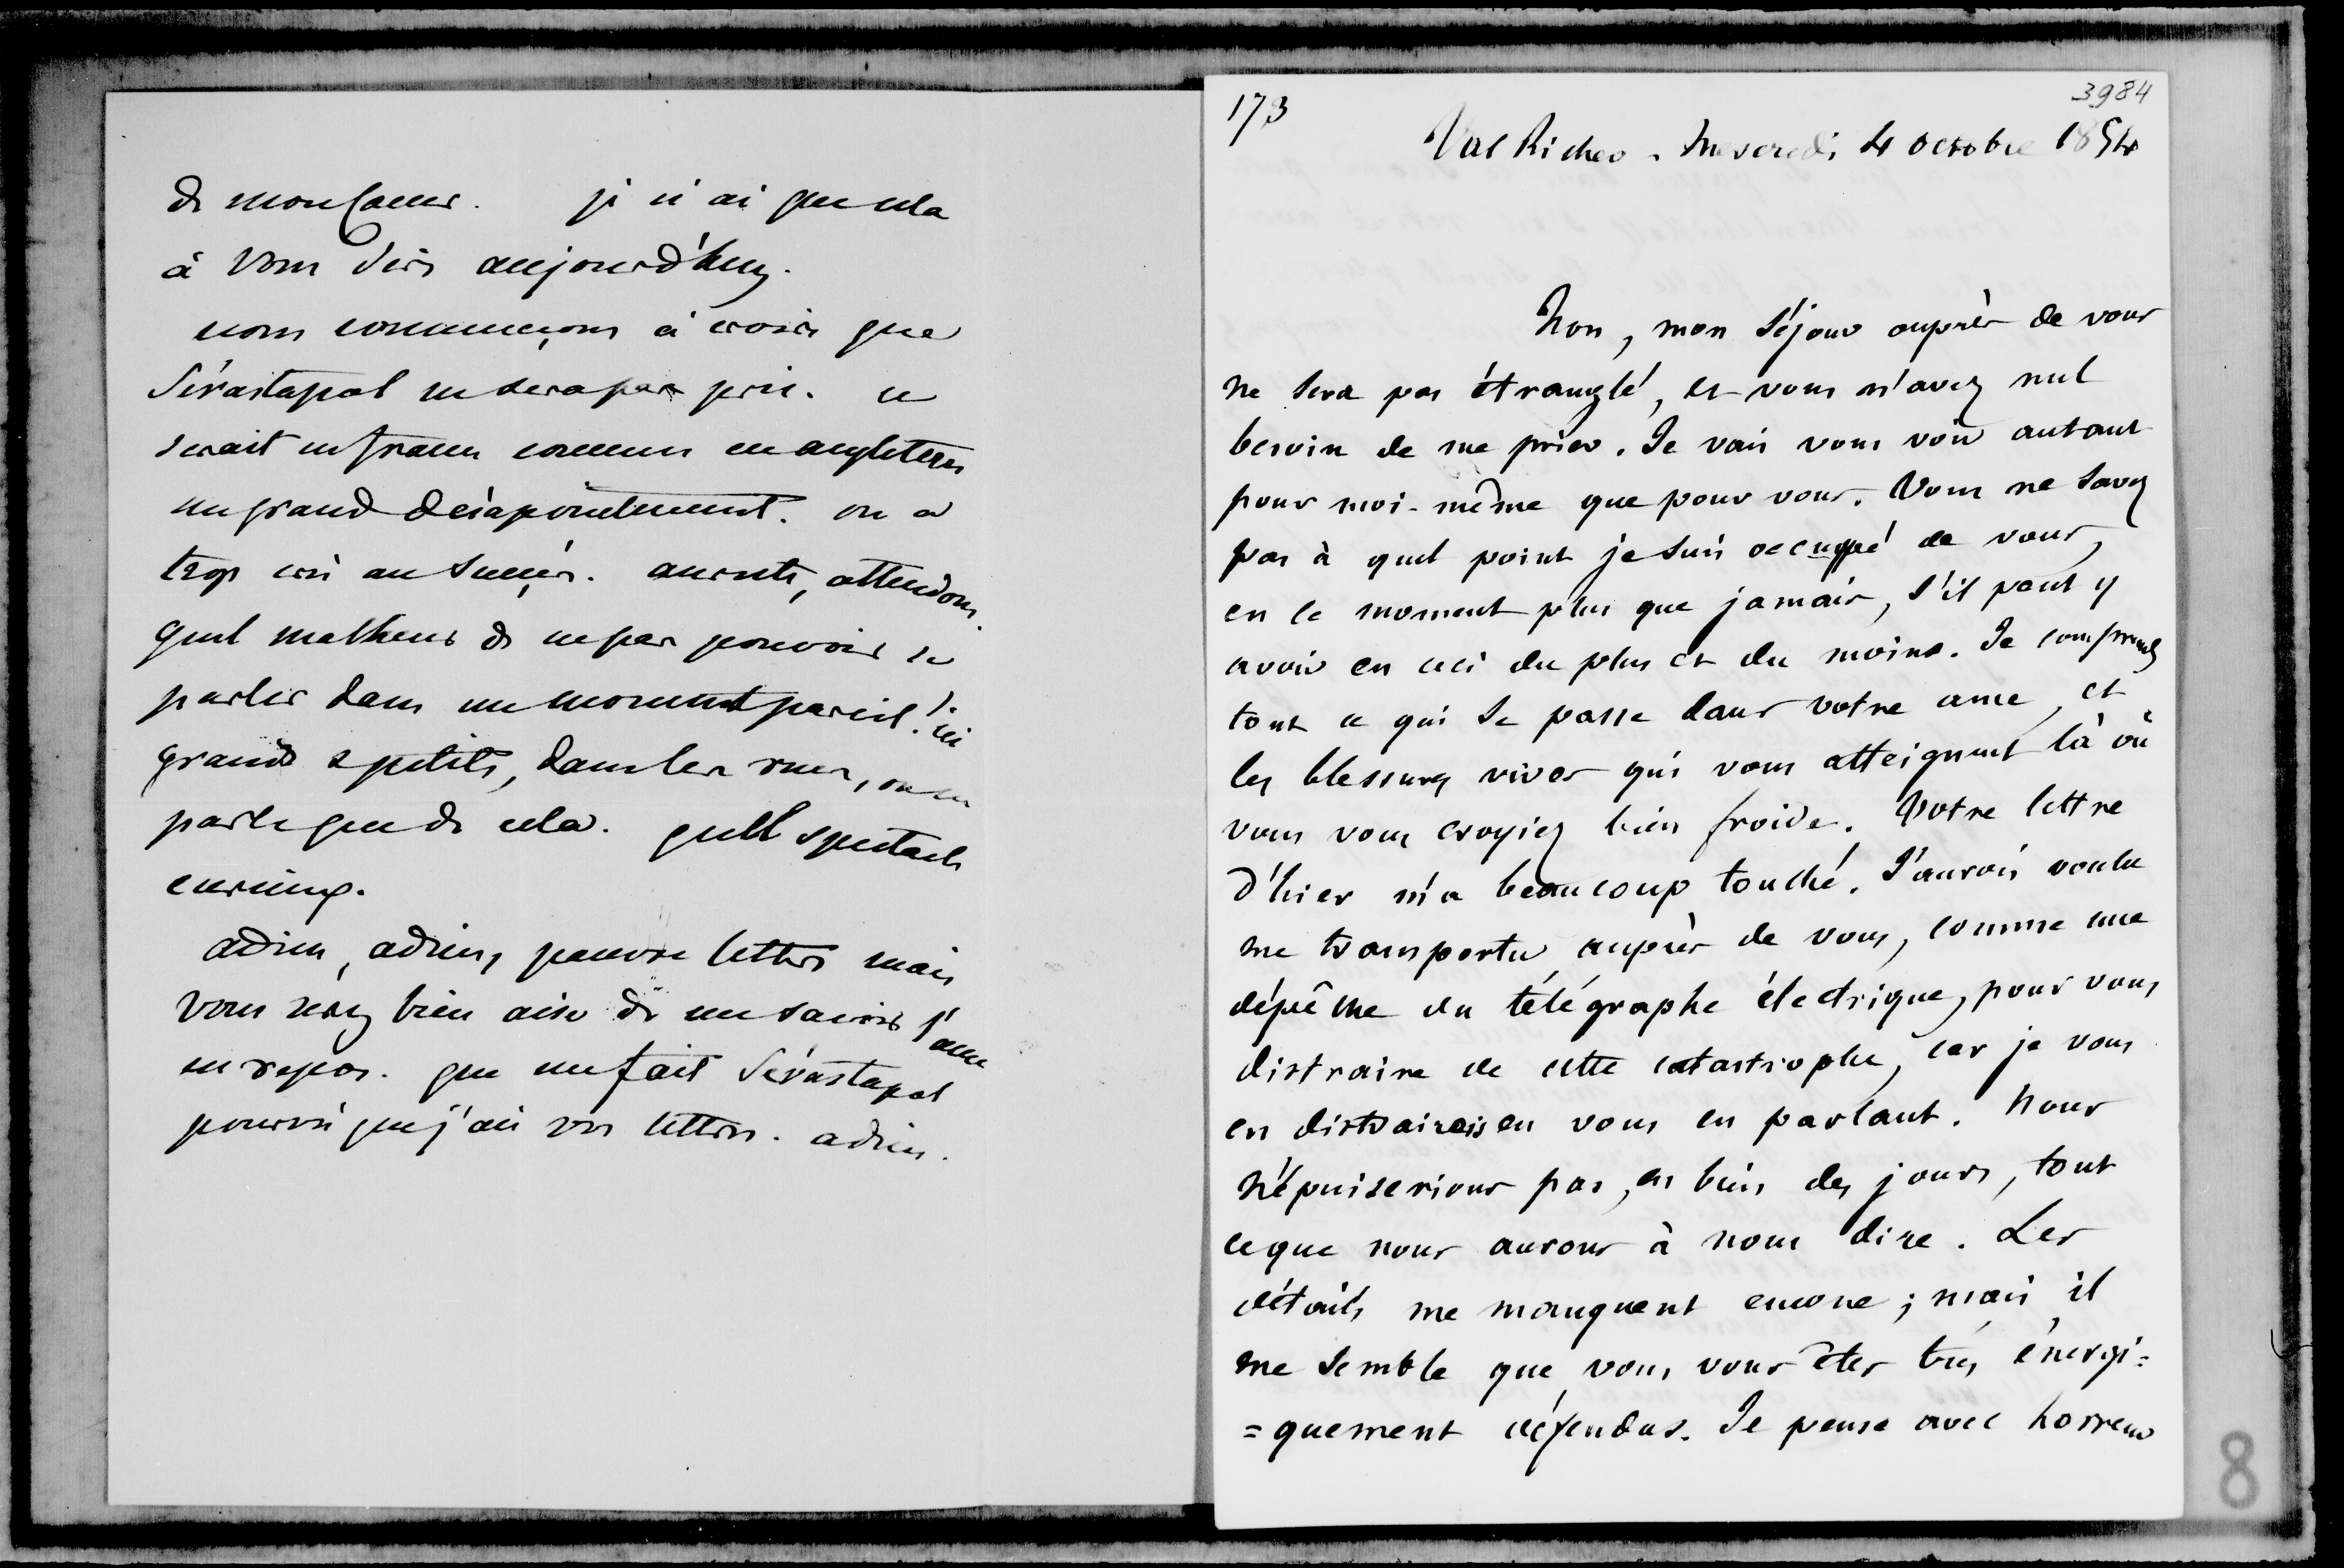 de mon cœur. je n'ai que cela
à vous dire aujourd'huy.
nous commençons à croire que
Sévastapol ne sera pas pris. ce
serait en france comme en angleterre
un grand désapointement. on a
trop crû au succès. au reste, attendons.
quel malheur de ne pas pouvoir se
parler dans un moment pareil! ici
grands & petits, dans les rues, on ne
parle que de cela. quel spectacle
curieux.
adieu, adieu, pauvre lettre mais
vous serez bien aise de me savoir l'ame
en repos. que me fait Sévastapol
pourvu que j'aie vos lettres. adieu.
173
3984
Val Richer - Mercredi 4 octobre 1854
Non, mon séjour auprès de vous
ne sera pas étranglé, et vous n'avez nul
besoin de me prier. Je vais vous voir autant
pour moi-même que pour vous. Vous ne savez
pas à quel point je suis occuppé de vous,
en ce moment plus que jamais, s'il peut y
avoir en ceci du plus et du moins. Je comprends
tout ce qui se passe dans votre ame, et
les blessures vives qui vous atteignent là où
vous vous croyiez bien froide. Votre lettre
d'hier m'a beaucoup touché. J'aurois voulu
me transporter auprès de vous, comme une
dépêche du télégraphe électrique, pour vous
distraire de cette catastrophe, car je vous
en distrairois en vous en parlant. Nous
n'épuiserions pas, en bien des jours, tout
ce que nous aurons à nous dire. Les
détails me manquent encore; mais il
me semble que vous vous êtes très énergi=
=quement défendus. Je pense avec horreur
8